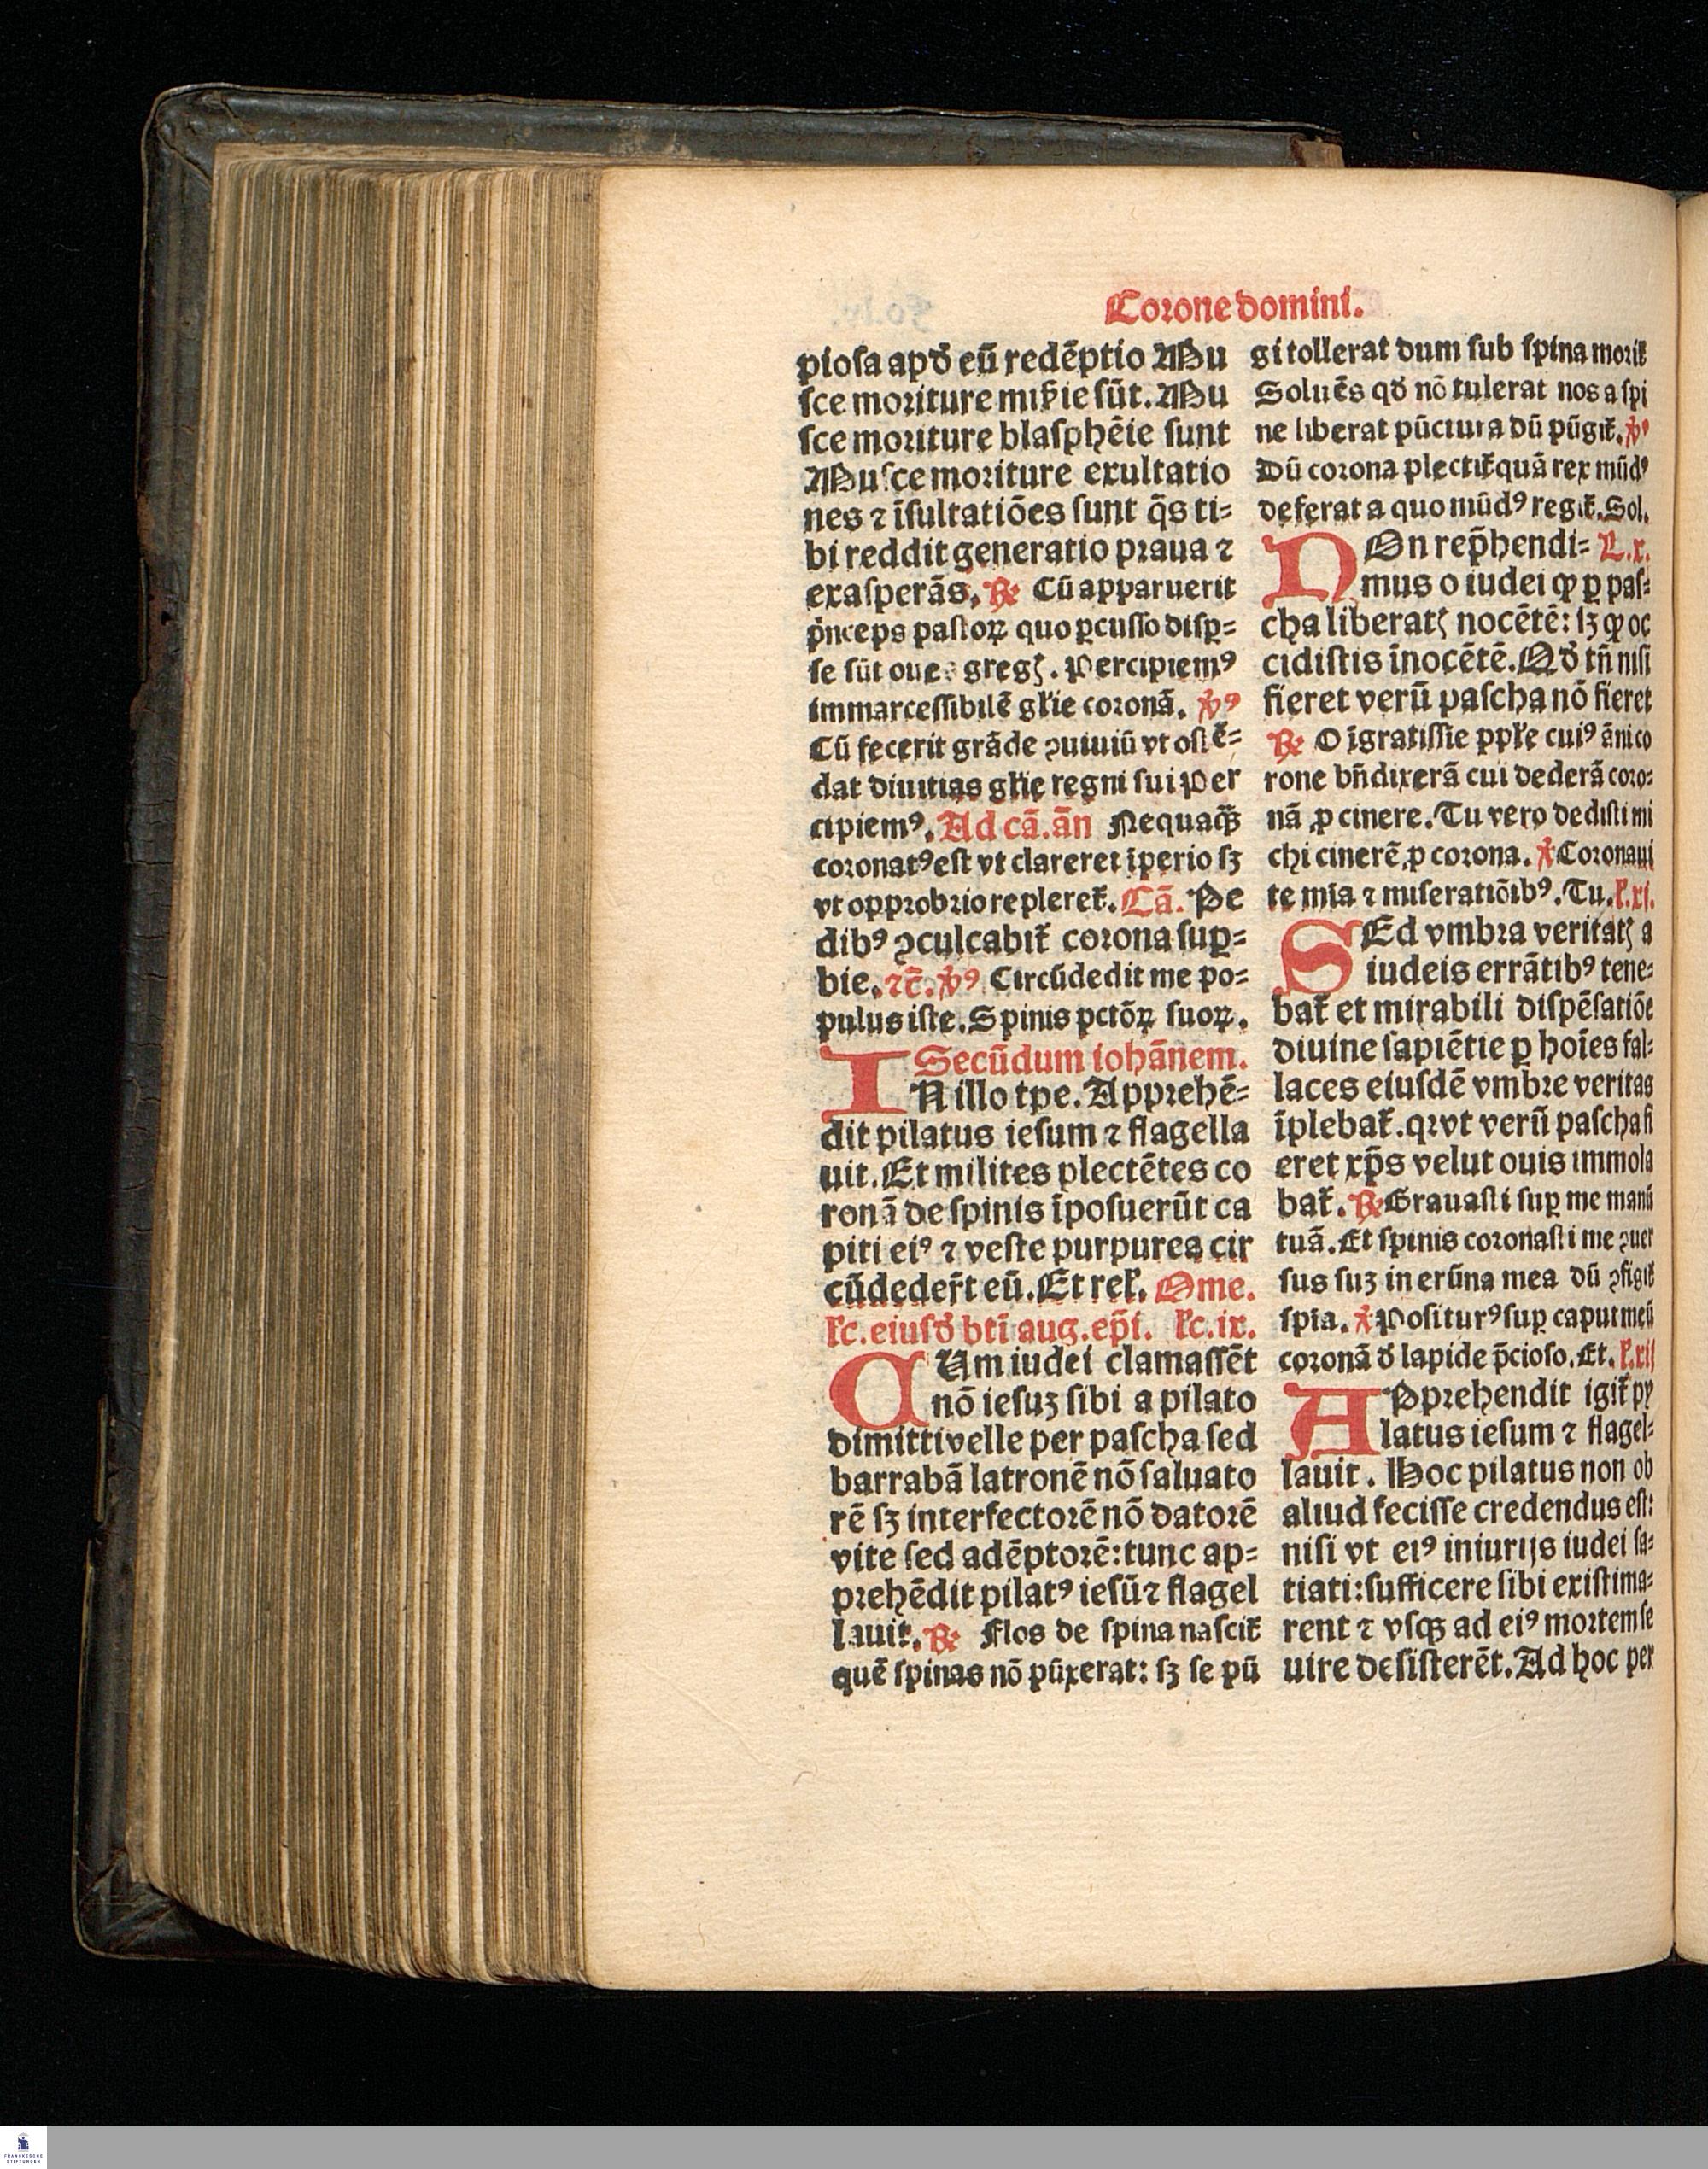 Corone domini.
pioſa apđ eū redēptio Mu
ſce moriture miẜie ſūt. Mu
ſce moriture blaſphēie ſunt
Muſce moriture exultatio
nes ⁊ īſultatiōes ſunt q̄s ti⸗
bi reddit generatio praua ⁊
exaſperās. ℟ Cū apparuerit
p̄nceps paſtoꝝ quo ꝑcuſſo diſꝑ⸗
ſe ſūt oues gregꝭ. Percipiemꝰ
immarceſſibilē gl̄ie coronā. ℣ꝰ
Cū fecerit grāde ꝯuiuiū vt oſtē⸗
dat diuitias gl̄ie regni ſui Per
cipiemꝰ. Ad cā. ān Nequaꝙ̄
coronatꝰ eſt vt clareret īperio ſꝫ
vt opprobrio repleret᷑. Cā. Pe
dibꝰ ꝯculcabit᷑ corona ſuꝑ⸗
bie. ⁊c̄. ℣ꝰ Circūdedit me po⸗
pulus iſte. Spinis pctōꝝ ſuoꝝ.
Secūdum iohānem.
IN illo tpe. Apprehē⸗
dit pilatus ieſum ⁊ flagella
uit. Et milites plectētes co
ronā de ſpinis īpoſuerūt ca
piti eiꝰ ⁊ veſte purpurea cir
cūdeder̄t eū. Et rel̄. Ome.
l̄c. eiuſđ btī aug. ep̄i. l̄c. ix.
CUm iudei clamaſſēt
nō ieſuꝫ ſibi a pilato
dimitti velle per paſcha ſed
barrabā latronē nō ſaluato
rē ſꝫ interfectorē nō datorē
vite ſed adēptorē: tunc ap⸗
prehēdit pilatꝰ ieſū ⁊ flagel
lauit. ℟ Flos de ſpina naſcit᷑
quē ſpinas nō pūxerat: ſꝫ ſe pū
gi tollerat dum ſub ſpina morit᷑
Soluēs qđ nō tulerat nos a ſpi
ne liberat pūctura dū pūgit᷑. ℣ꝰ
Dū corona plectit᷑ quā rex mūdꝰ
deferat a quo mūdꝰ regit᷑. Sol.
NOn rep̄hendi⸗ L. x.
mus o iudei ꝙ ꝑ paſ⸗
cha liberatꝭ nocētē: ſꝫ ꝙ oc
cidiſtis īnocētē. Qđ tn̄ niſi
fieret verū paſcha nō fieret
℟ O īgratiſſie ppl̄e cuiꝰ ānico
rone bn̄dixerā cui dederā coro⸗
nā ꝓ cinere. Tu vero dediſti mi
chi cinerē ꝓ corona. ℣ Coronaui
te mīa ⁊ miſeratiōibꝰ. Tu. l̄. xi.
SEd vmbra veritatꝭ a
iudeis errātibꝰ tene⸗
bat᷑ et mirabili diſpēſatiōe
diuine ſapiētie ꝑ hoīes fal⸗
laces eiuſdē vmbre veritas
īplebat᷑. qꝛ vt verū paſcha fi
eret xp̄s velut ouis immola
bat᷑. ℟ Grauaſti ſuꝑ me manū
tuā. Et ſpinis coronaſti me ꝯuer
ſus ſuꝫ in erūna mea dū ꝯfigit᷑
ſpia. ℣ Poſiturꝰ ſuꝑ caput meū
coronā đ lapide p̄cioſo. Et. l̄. xij
APprehendit igit᷑ py
latus ieſum ⁊ flagel⸗
lauit. Hoc pilatus non ob
aliud feciſſe credendus eſt:
niſi vt eiꝰ iniurijs iudei ſa⸗
tiati: ſufficere ſibi exiſtima⸗
rent ⁊ vſqꝫ ad eiꝰ mortem ſe
uire deſiſterēt. Ad hoc per
FRANCKESCHE
STIFTUNGEN